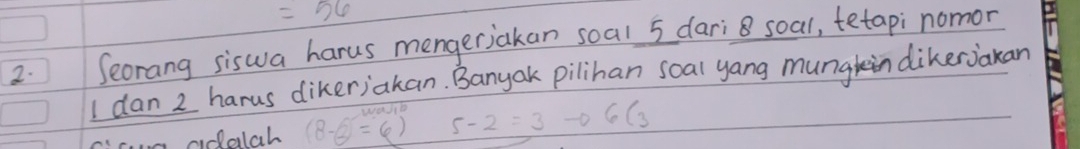 = 56
2. Seorang siswa harus mengerjakan soal 5 dari 8 soal, tetapi nomor
1 dan 2 harus dikerjakan. Banyak pilihan soal yang mungkin dikerjakan
wajib
adalah (8-2=6) 5-2=3 → 6C3